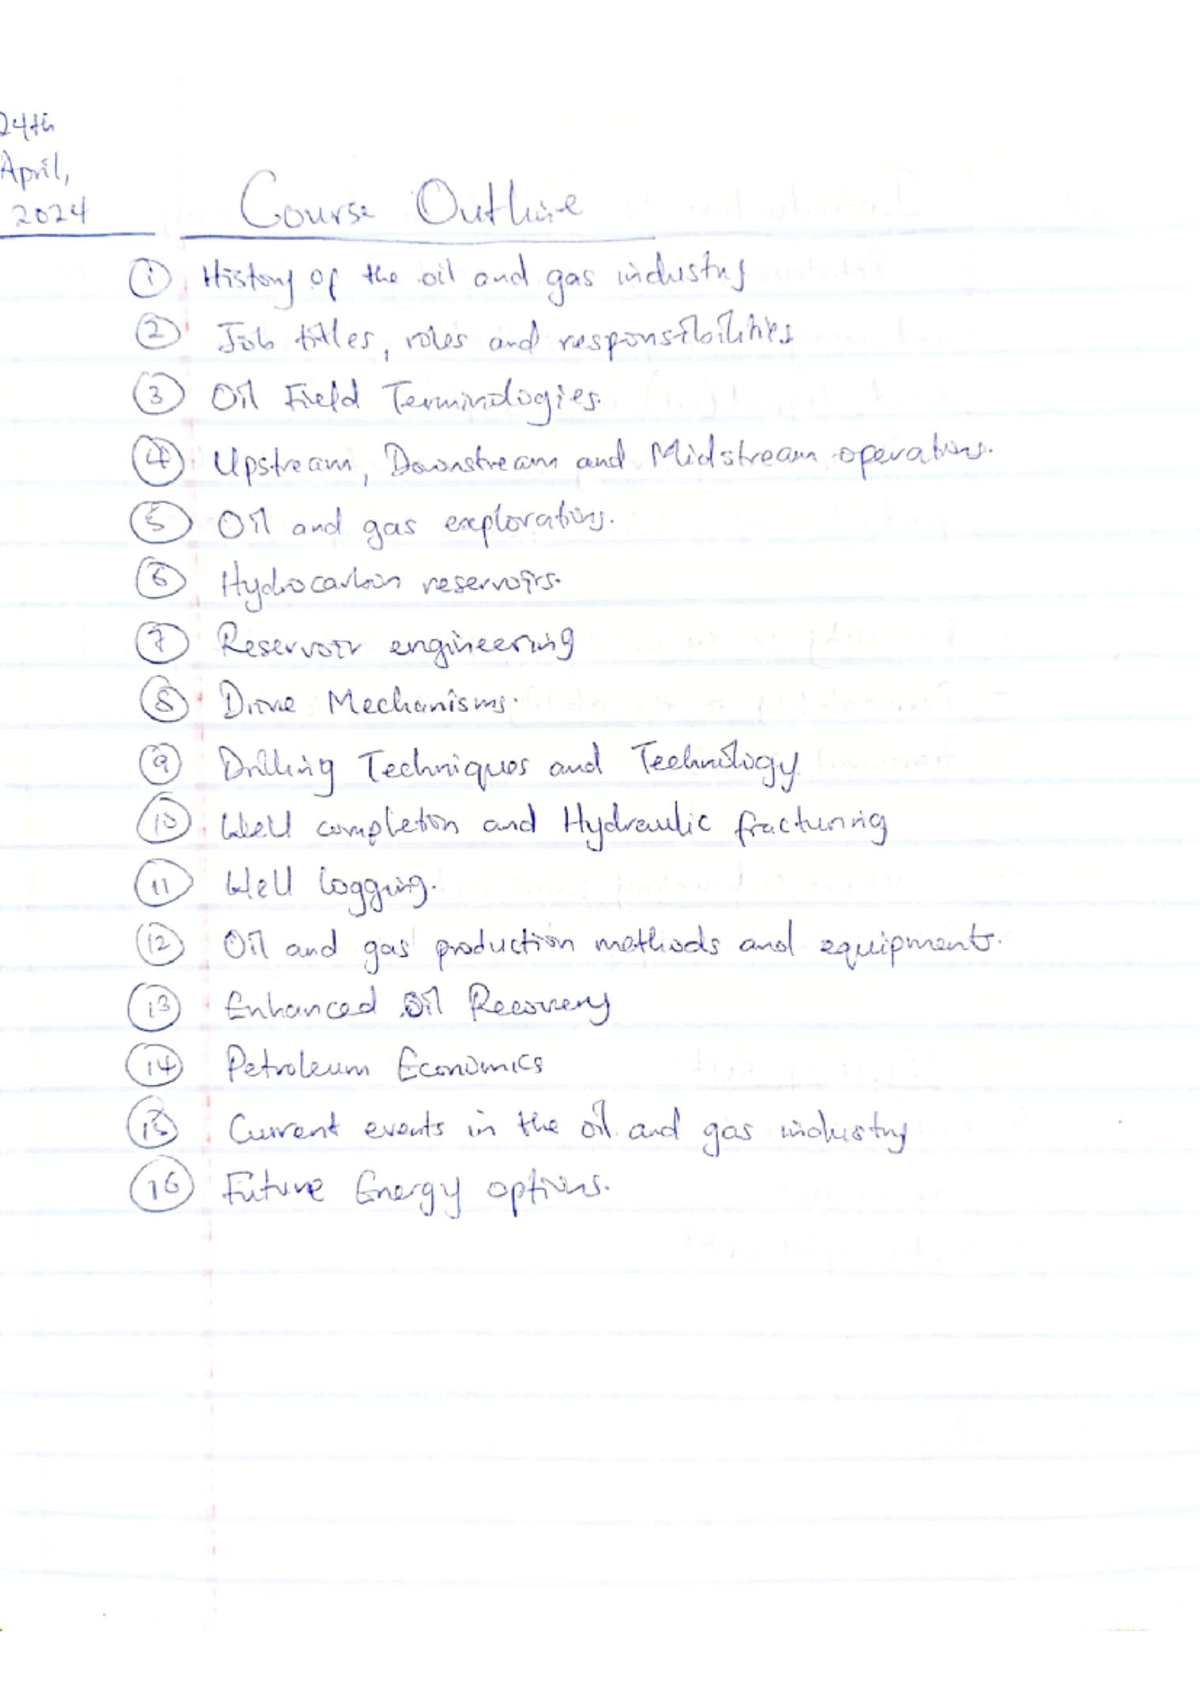 24th
April,
2024
Course Outline
1 History of the oil and gas industry
2 Job titles, roles and responsibilities
3 Oil Field Terminologies.
4 Upstream, Downstream and Midstream operations.
5 Oil and gas explorations.
6 Hydrocarbon reservoirs.
7 Reservoir engineering
8 Drive Mechanisms.
9 Drilling Techniques and Technology
10 Well completion and Hydraulic fracturing
11 Well logging.
12 Oil and gas production methods and equipments.
13 Enhanced Oil Recovery
14 Petroleum Economics
15 Current events in the oil and gas industry
16 Future Energy options.